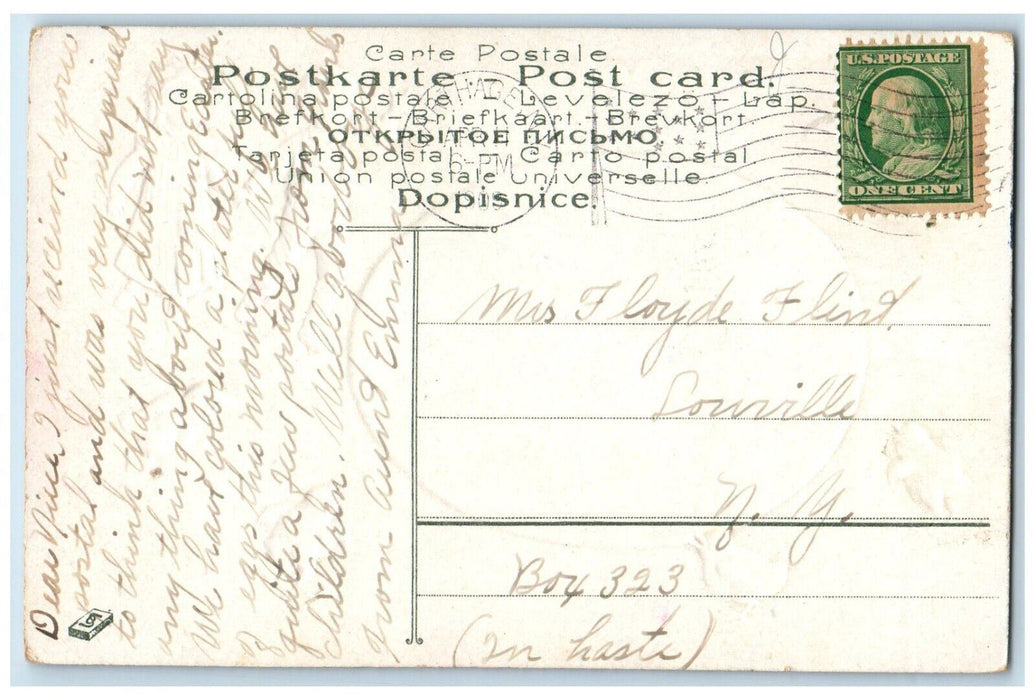 Carte Postale
Postkarte – Post card.
Cartolina postale – Levelezö – Lap.
Brefkort – Briefkaart. – Brevkort
ОТКРЫТОЕ ПИСЬМО
Tarjeta postal Carto postal
Union postale universelle.
Dopisnice.
HAGE
6-PM
U.S. POSTAGE
ONE CENT
Mrs Floyde Flint
Lowville
N. Y.
Box 323
(In haste)
Dear Niece I just received your
postal and was very surprised
to think that you did not say
any thing about coming Easter.
We have colored a
eggs this morning. We have
quite a few postals from
children. Well goodby
from Aunt Emma